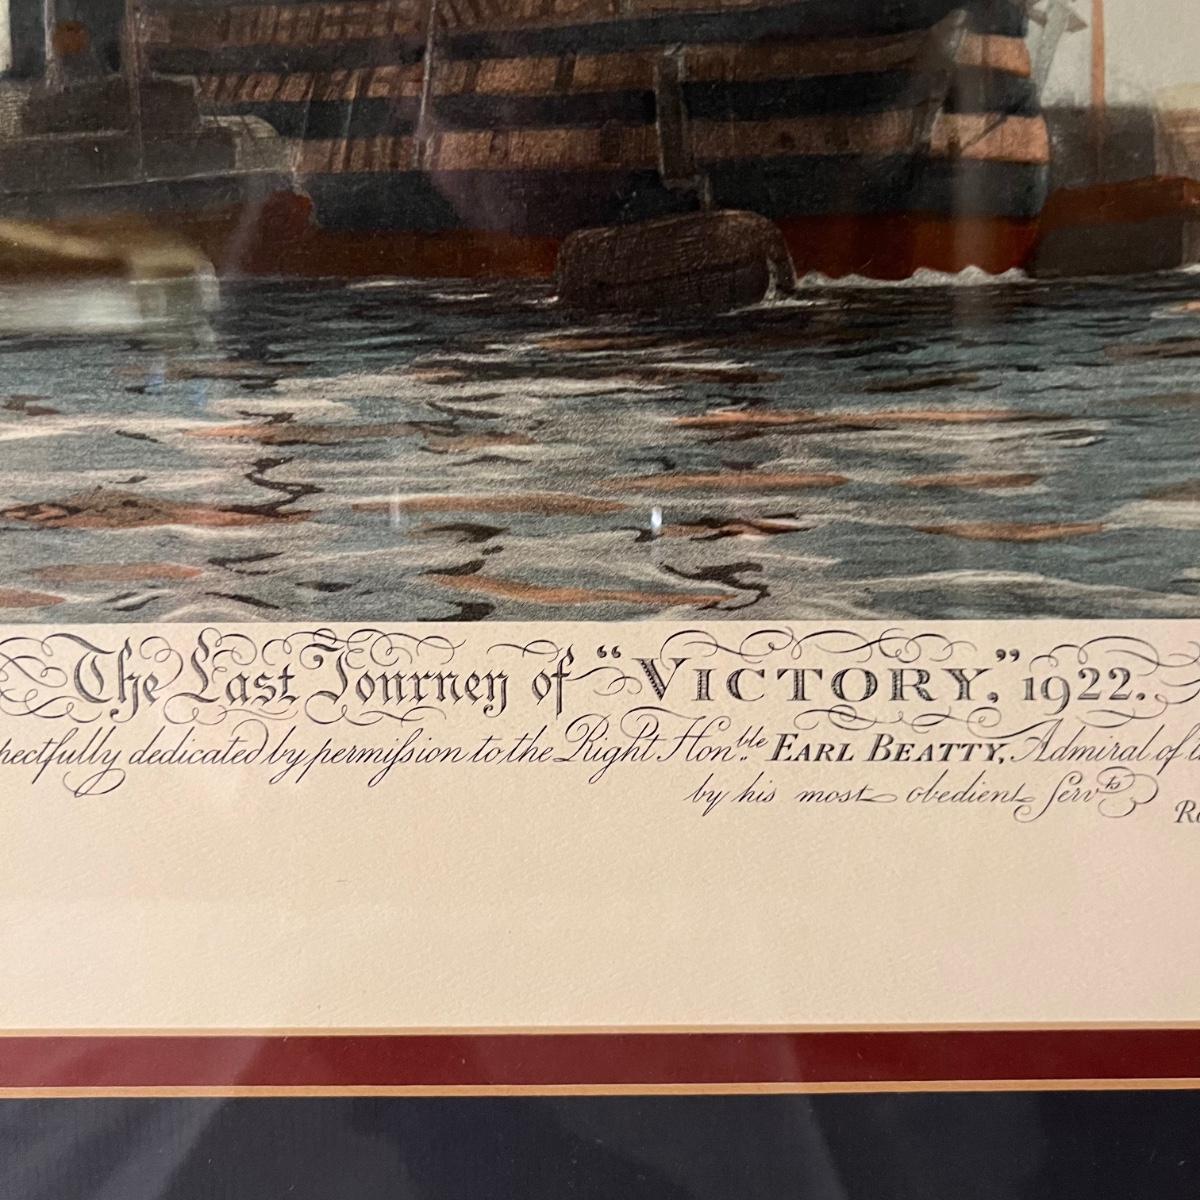 The Last Journey of "VICTORY," 1922.
pectfully dedicated by permiſsion to the Right Hon.ble EARL BEATTY, Admiral of
by his most obedient Servts